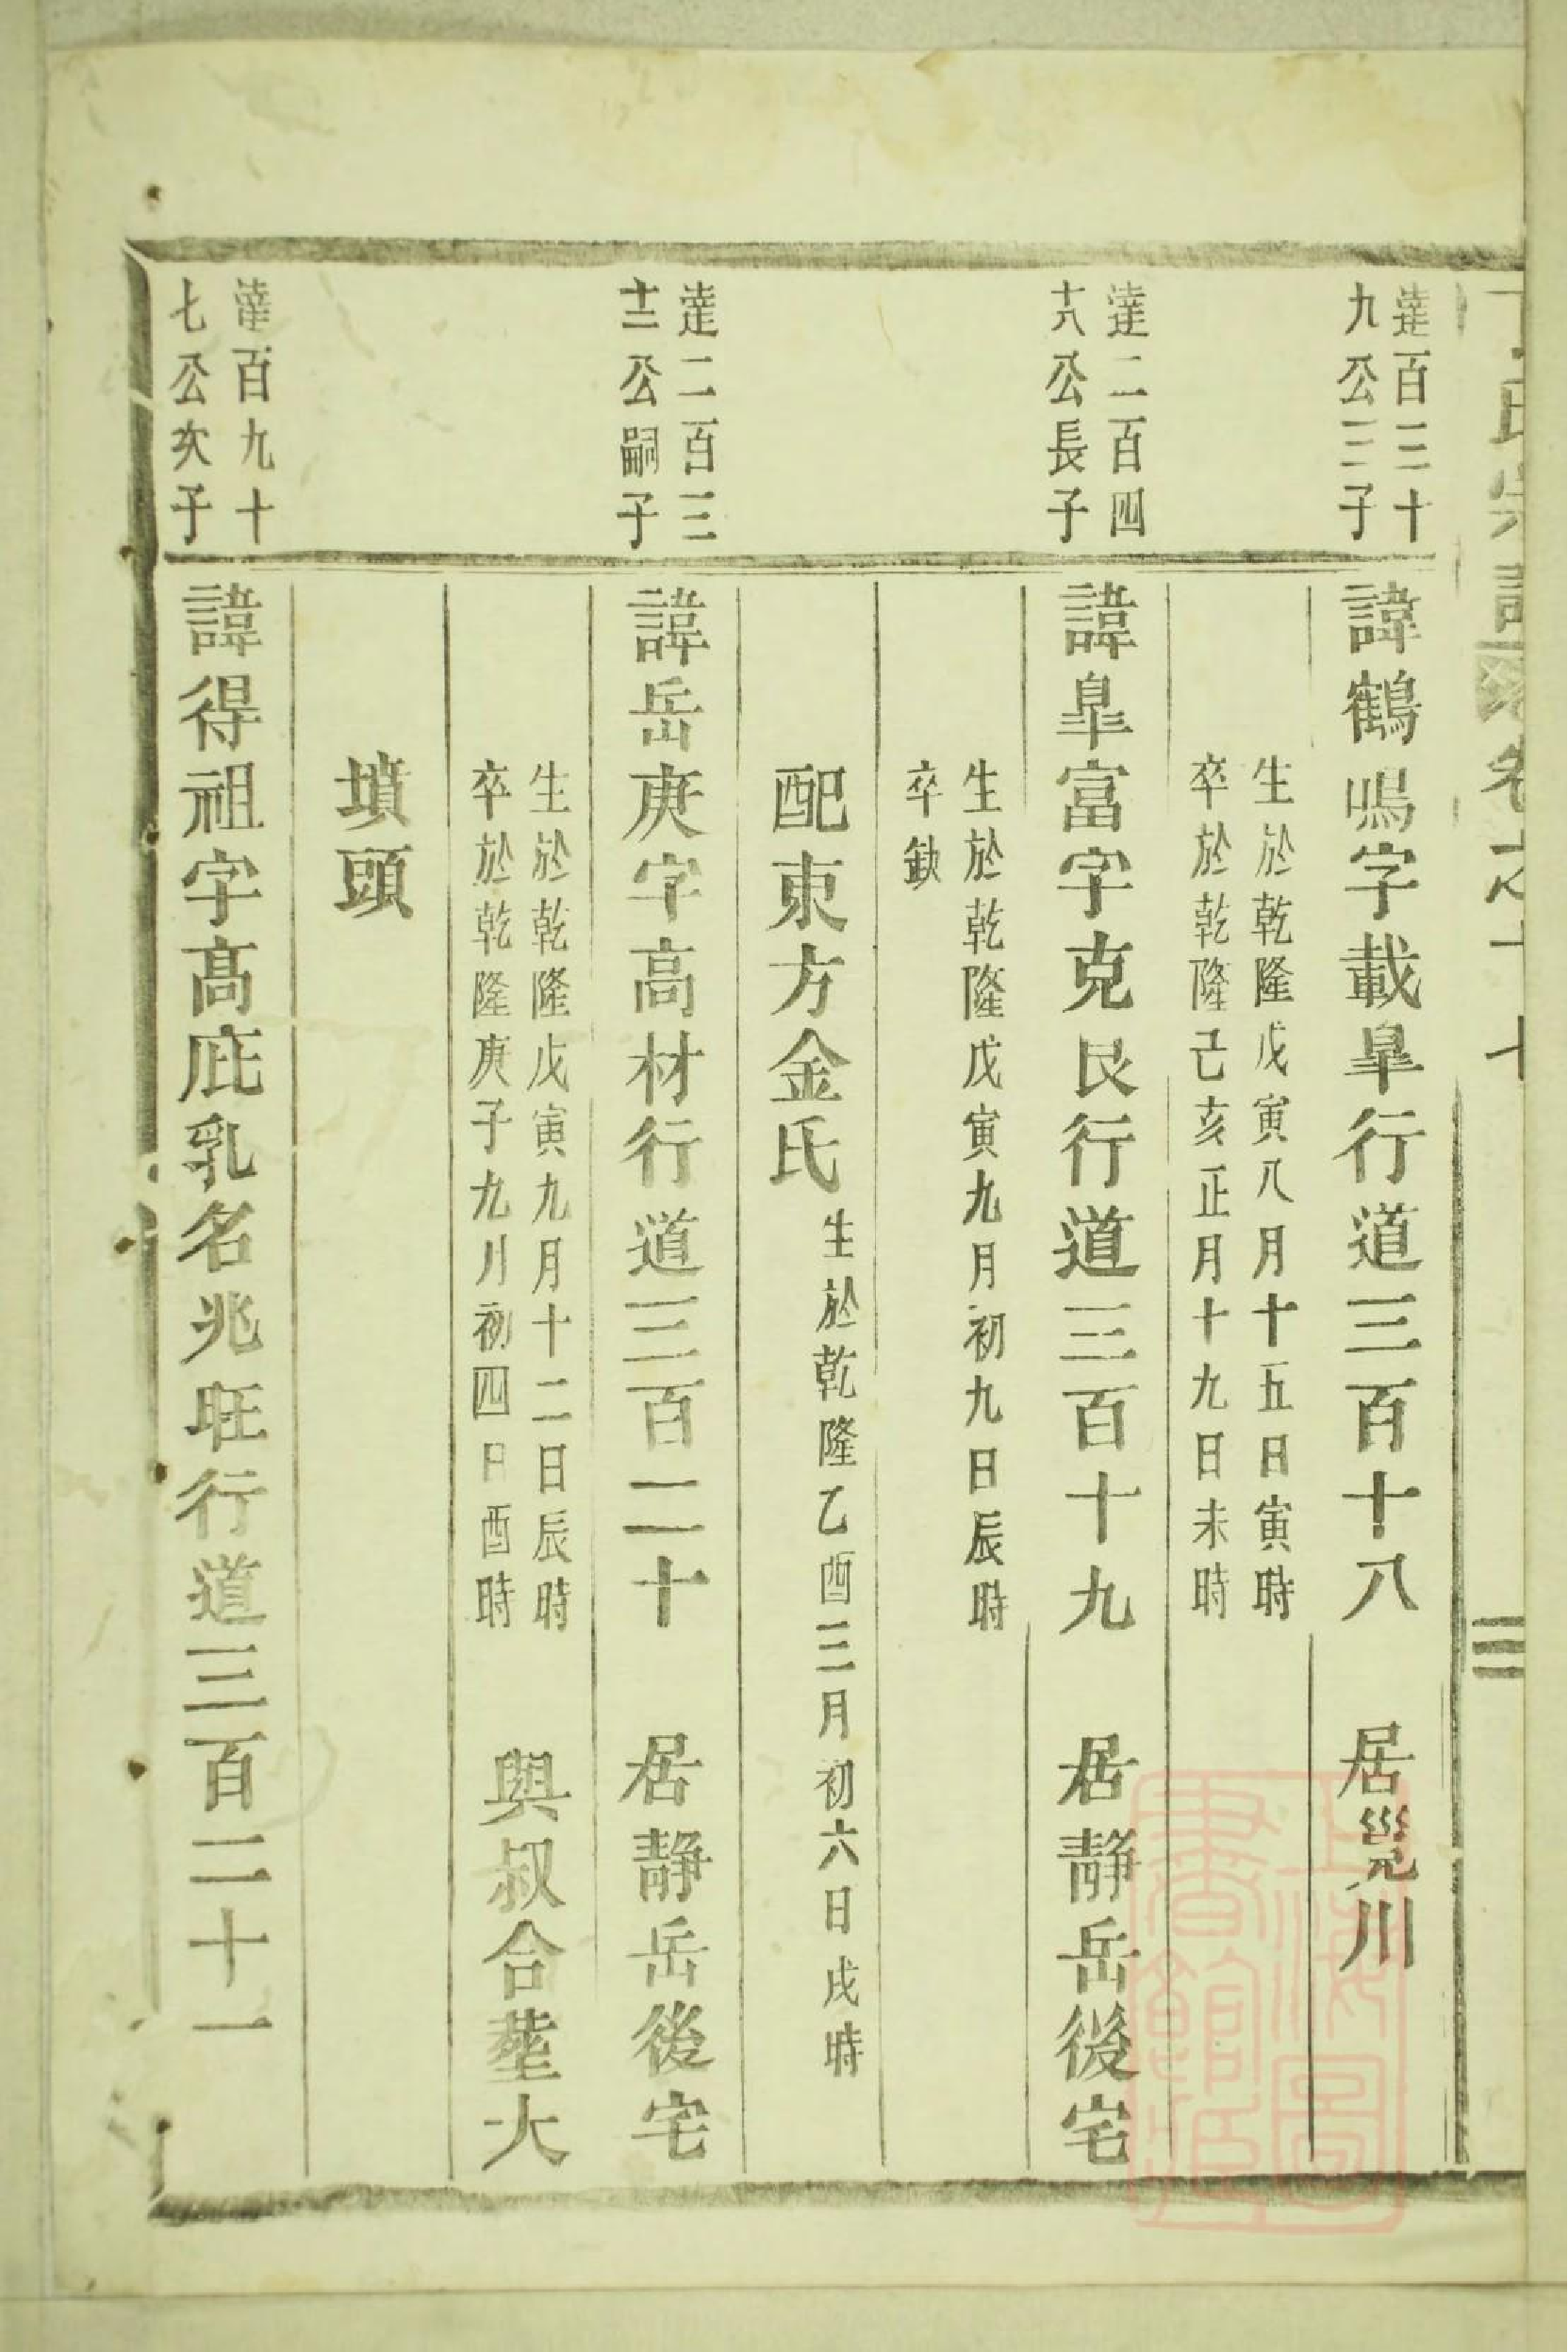 氏宗譜 卷之十七
三
達百三十
九公三子
諱鶴鳴字載臯行道三百十八 居覺川
生於乾隆戊寅八月十五日寅時
卒於乾隆己亥正月十九日未時
達二百四
十八公長子
諱臯富字克艮行道三百十九 居靜岳後宅
生於乾隆戊寅九月初九日辰時
卒缺
配東方金氏 生於乾隆乙酉三月初六日戌時
達二百三
十三公嗣子
諱岳庚字高材行道三百二十 居靜岳後宅
生於乾隆戊寅九月十二日辰時
卒於乾隆庚子九月初四日酉時
與叔合塟大
墳頭
達百九十
七公次子
諱得祖字髙庇乳名兆旺行道三百二十一
上海圖
書館藏